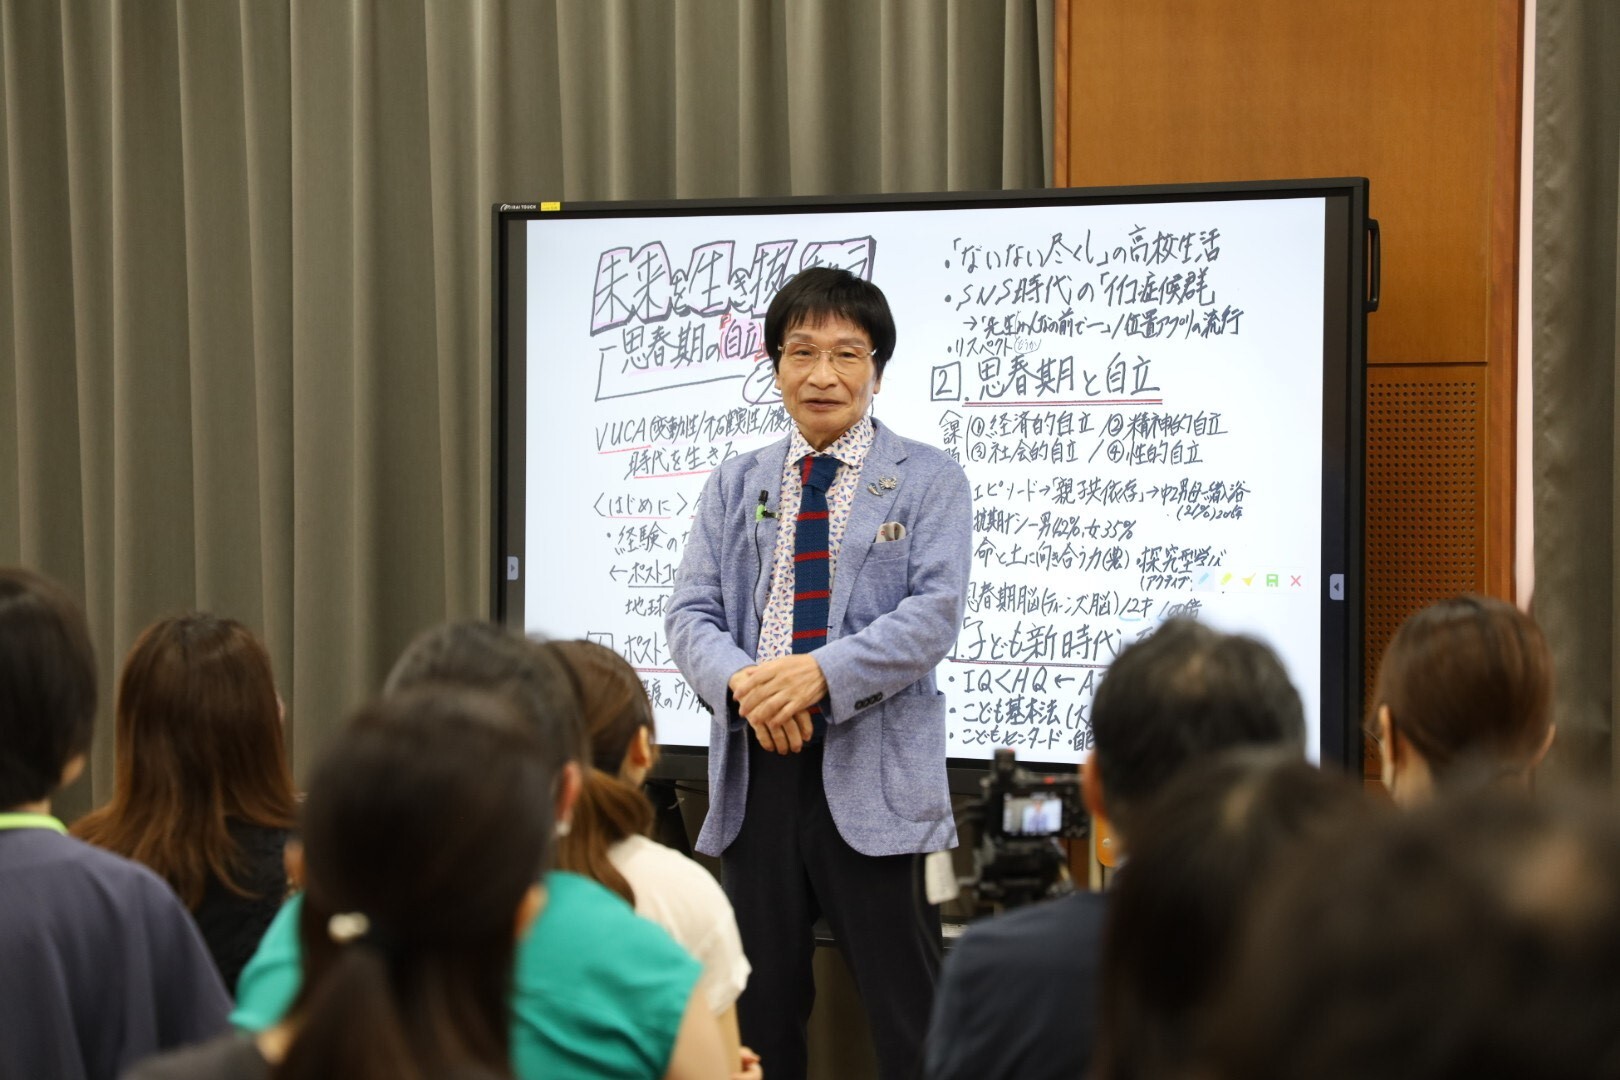 MIRAI TOUCH
未来を生き抜く
思春期の自立
VUCA(変動性/不確実性/複
時代を生きる
〈はじめに〉
・経験の
←ポストコ
地球
ポスト
度のウ
・「ないない尽くし」の高校生活
・SNS時代の「イイコ症候群
→「先生みんなの前で―」/位置アプリの流行
・リスペクト
2.思春期と自立
課 ①経済的自立/②精神的自立
③社会的自立/④性的自立
エピソード→「親子共依存」→中2男母一緒入浴
(21%)
抗期ナシ―男42%、女35%
命と土に向き合う力(農)・探究型学び
(アクティブ
思春期脳(ティーンズ脳)/
「子ども新時代」
・IQ<HQ←A
・こども基本法(大
・こどもセンタード・自